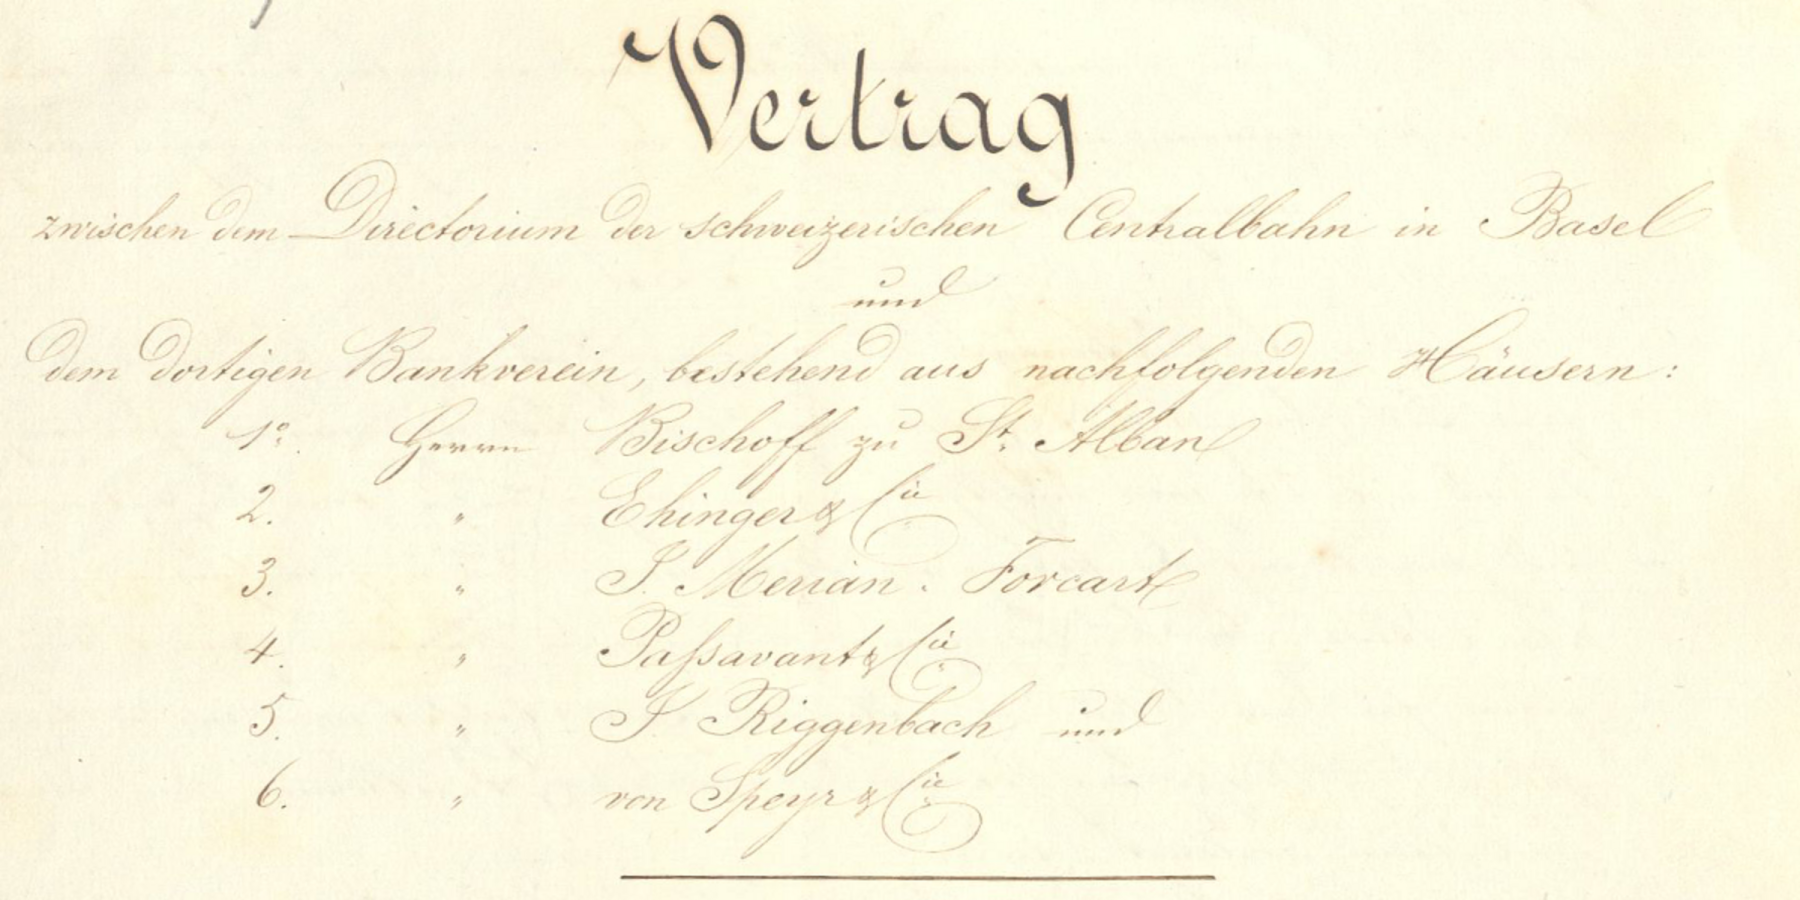 Vertrag
zwischen dem Directorium der schweizerischen Centralbahn in Basel
und
dem dortigen Bankverein, bestehend aus nachfolgenden Häusern:
1º. Herrn Bischoff zu St. Alban
2. " Ehinger & Cie
3. " J. Merian-Forcart
4. " Paſsavant & Cie
5. " J. Riggenbach und
6. " von Speyr & Cie